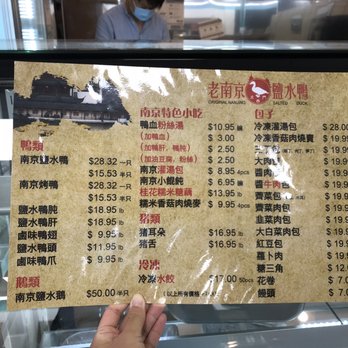 老南京 鹽水鴨
ORIGINAL NANJING SALTED DUCK
鴨類
南京鹽水鴨 $28.32 一只
$15.53 半只
南京烤鴨 $28.32 一只
$15.53 半只
鹽水鴨肫 $18.95 lb
鹽水鴨肝 $18.95 lb
鹵味鴨翅 $ 9.95 lb
鹽水鴨頭 $11.95 lb
鹵味鴨爪 $ 9.95 lb
鵝類
南京鹽水鵝 $50.00 半只
南京特色小吃
鴨血粉絲湯 $10.95 碗
(加鴨血) $ 3.00
(加鴨肝, 鴨肫) $ 2.50
(加油豆腐, 粉絲) $ 2.50
南京灌湯包 $ 8.95 4pcs
南京小餛飩 $ 6.95 碗
桂花糯米糖藕 $13.95 lb
糯米香菇肉燒麥 $ 9.95 4pcs
豬類
豬耳朵 $18.95 lb
豬舌 $16.95 lb
冷凍
冷凍水餃 $17.00 50pcs
(以上所有價格
包子
冷凍灌湯包 $28
冷凍香菇肉燒賣 $19.9
$19.99
大肉包 $19.
醬肉包 $19.
醬牛肉包 $19.
齊菜肉包 $19.
齊菜素包 $19.
韭菜肉包 $19.
大白菜肉包 $19.
紅豆包 $19.
蘿卜肉 $19.
糖三角 $12.
花卷 $
饅頭 $